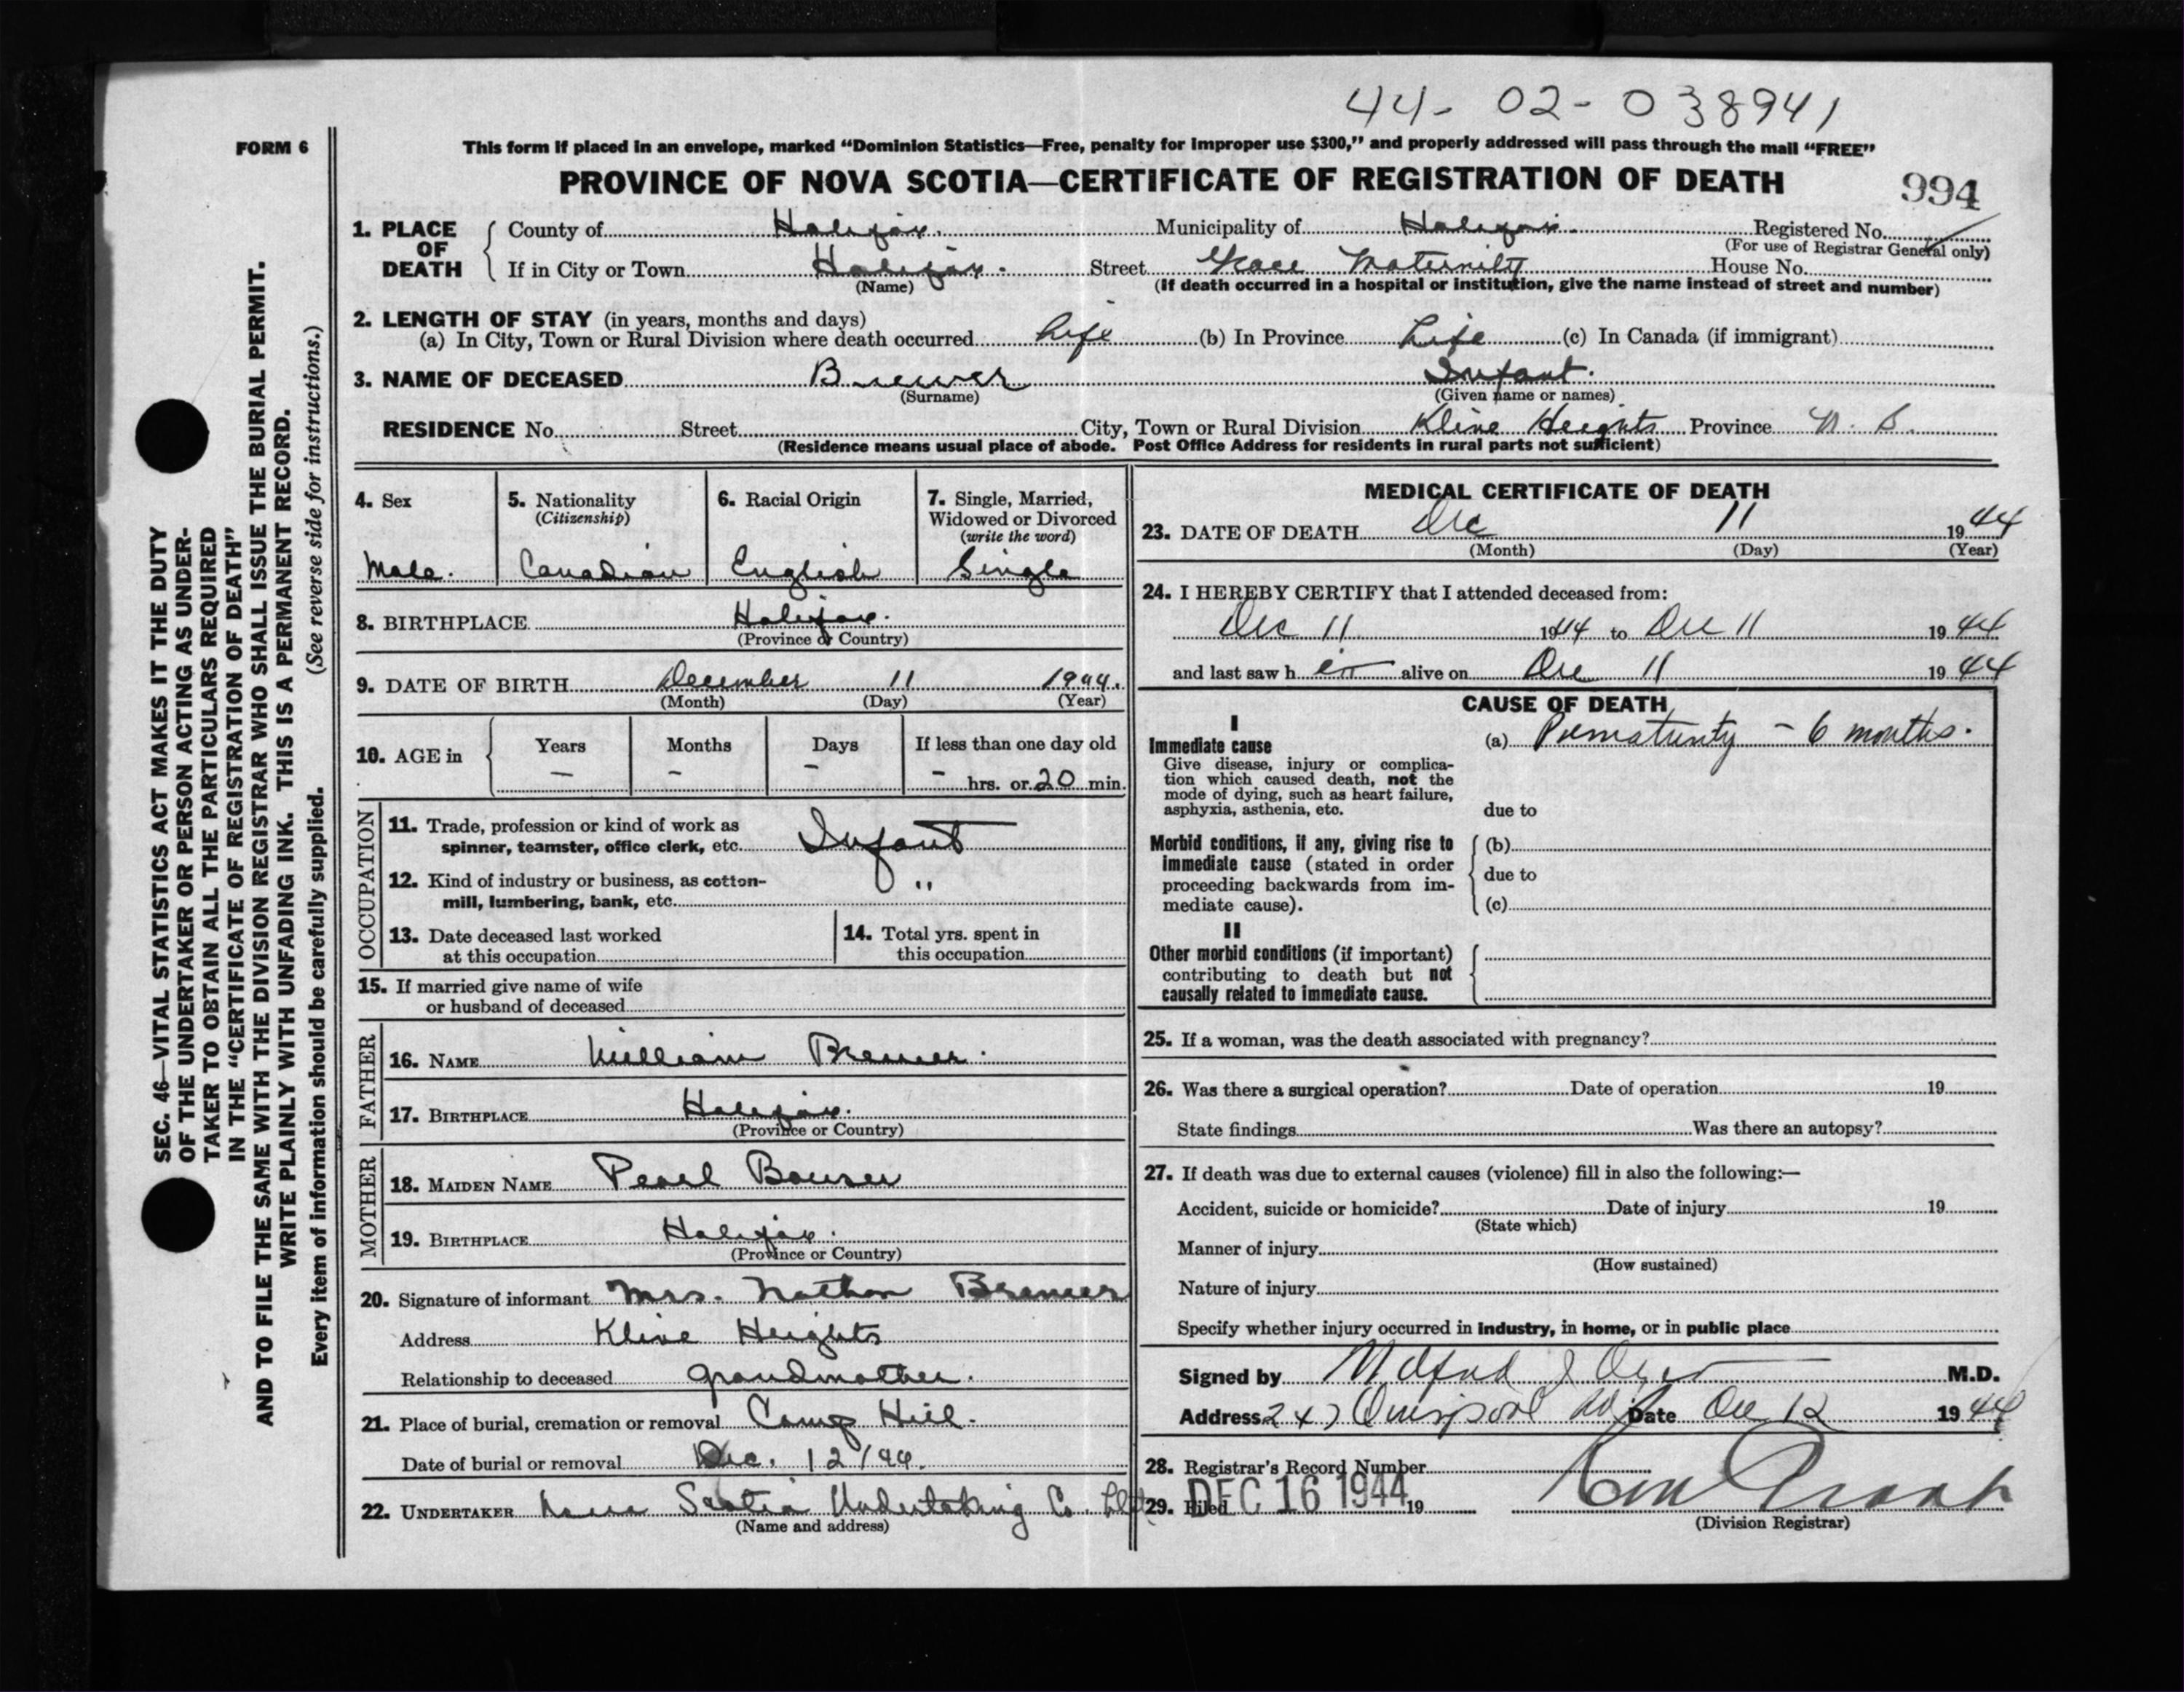 44-02-038941
FORM 6
This form if placed in an envelope, marked “Dominion Statistics—Free, penalty for improper use $300,” and properly addressed will pass through the mail “FREE”
PROVINCE OF NOVA SCOTIA—CERTIFICATE OF REGISTRATION OF DEATH
994
1. PLACE OF DEATH
County of Halifax. Municipality of Halifax. Registered No.
(For use of Registrar General only)
If in City or Town Halifax. Street Grace Maternity House No.
(Name) (If death occurred in a hospital or institution, give the name instead of street and number)
2. LENGTH OF STAY (in years, months and days)
(a) In City, Town or Rural Division where death occurred Life (b) In Province Life (c) In Canada (if immigrant)
3. NAME OF DECEASED Brewer Infant.
(Surname) (Given name or names)
RESIDENCE No. Street City, Town or Rural Division Kline Heights Province N. S.
(Residence means usual place of abode. Post Office Address for residents in rural parts not sufficient)
4. Sex
Male.
5. Nationality
(Citizenship)
Canadian
6. Racial Origin
English
7. Single, Married,
Widowed or Divorced
(write the word)
Single
8. BIRTHPLACE Halifax.
(Province or Country)
9. DATE OF BIRTH December 11 1944.
(Month) (Day) (Year)
10. AGE in Years Months Days If less than one day old
— – – – hrs. or 20 min.
OCCUPATION
11. Trade, profession or kind of work as
spinner, teamster, office clerk, etc. Infant
12. Kind of industry or business, as cotton-
mill, lumbering, bank, etc. "
13. Date deceased last worked
at this occupation
14. Total yrs. spent in
this occupation
15. If married give name of wife
or husband of deceased
FATHER
16. NAME William Brewer.
17. BIRTHPLACE Halifax.
(Province or Country)
MOTHER
18. MAIDEN NAME Pearl Bouser
19. BIRTHPLACE Halifax.
(Province or Country)
20. Signature of informant Mrs. Nathan Brewer
Address Kline Heights
Relationship to deceased grandmother.
21. Place of burial, cremation or removal Camp Hill.
Date of burial or removal Dec. 12/44.
22. UNDERTAKER Nova Scotia Undertaking Co. Ltd.
(Name and address)
MEDICAL CERTIFICATE OF DEATH
23. DATE OF DEATH Dec 11 1944
(Month) (Day) (Year)
24. I HEREBY CERTIFY that I attended deceased from:
Dec 11 1944 to Dec 11 1944
and last saw h im alive on Dec 11 1944
CAUSE OF DEATH
I
Immediate cause
Give disease, injury or complica-
tion which caused death, not the
mode of dying, such as heart failure,
asphyxia, asthenia, etc.
(a) Prematurity – 6 months.
due to
Morbid conditions, if any, giving rise to
immediate cause (stated in order
proceeding backwards from im-
mediate cause).
(b)
due to
(c)
II
Other morbid conditions (if important)
contributing to death but not
causally related to immediate cause.
25. If a woman, was the death associated with pregnancy?
26. Was there a surgical operation? Date of operation 19
State findings Was there an autopsy?
27. If death was due to external causes (violence) fill in also the following:—
Accident, suicide or homicide? Date of injury 19
(State which)
Manner of injury
(How sustained)
Nature of injury
Specify whether injury occurred in industry, in home, or in public place
Signed by M.D.
Address 247 Quinpool Rd Date Dec 12 1944
28. Registrar's Record Number
29. Filed DEC 16 1944 19
(Division Registrar)
SEC. 46—VITAL STATISTICS ACT MAKES IT THE DUTY
OF THE UNDERTAKER OR PERSON ACTING AS UNDER-
TAKER TO OBTAIN ALL THE PARTICULARS REQUIRED
IN THE “CERTIFICATE OF REGISTRATION OF DEATH”
AND TO FILE THE SAME WITH THE DIVISION REGISTRAR WHO SHALL ISSUE THE BURIAL PERMIT.
WRITE PLAINLY WITH UNFADING INK. THIS IS A PERMANENT RECORD.
Every item of information should be carefully supplied. (See reverse side for instructions.)